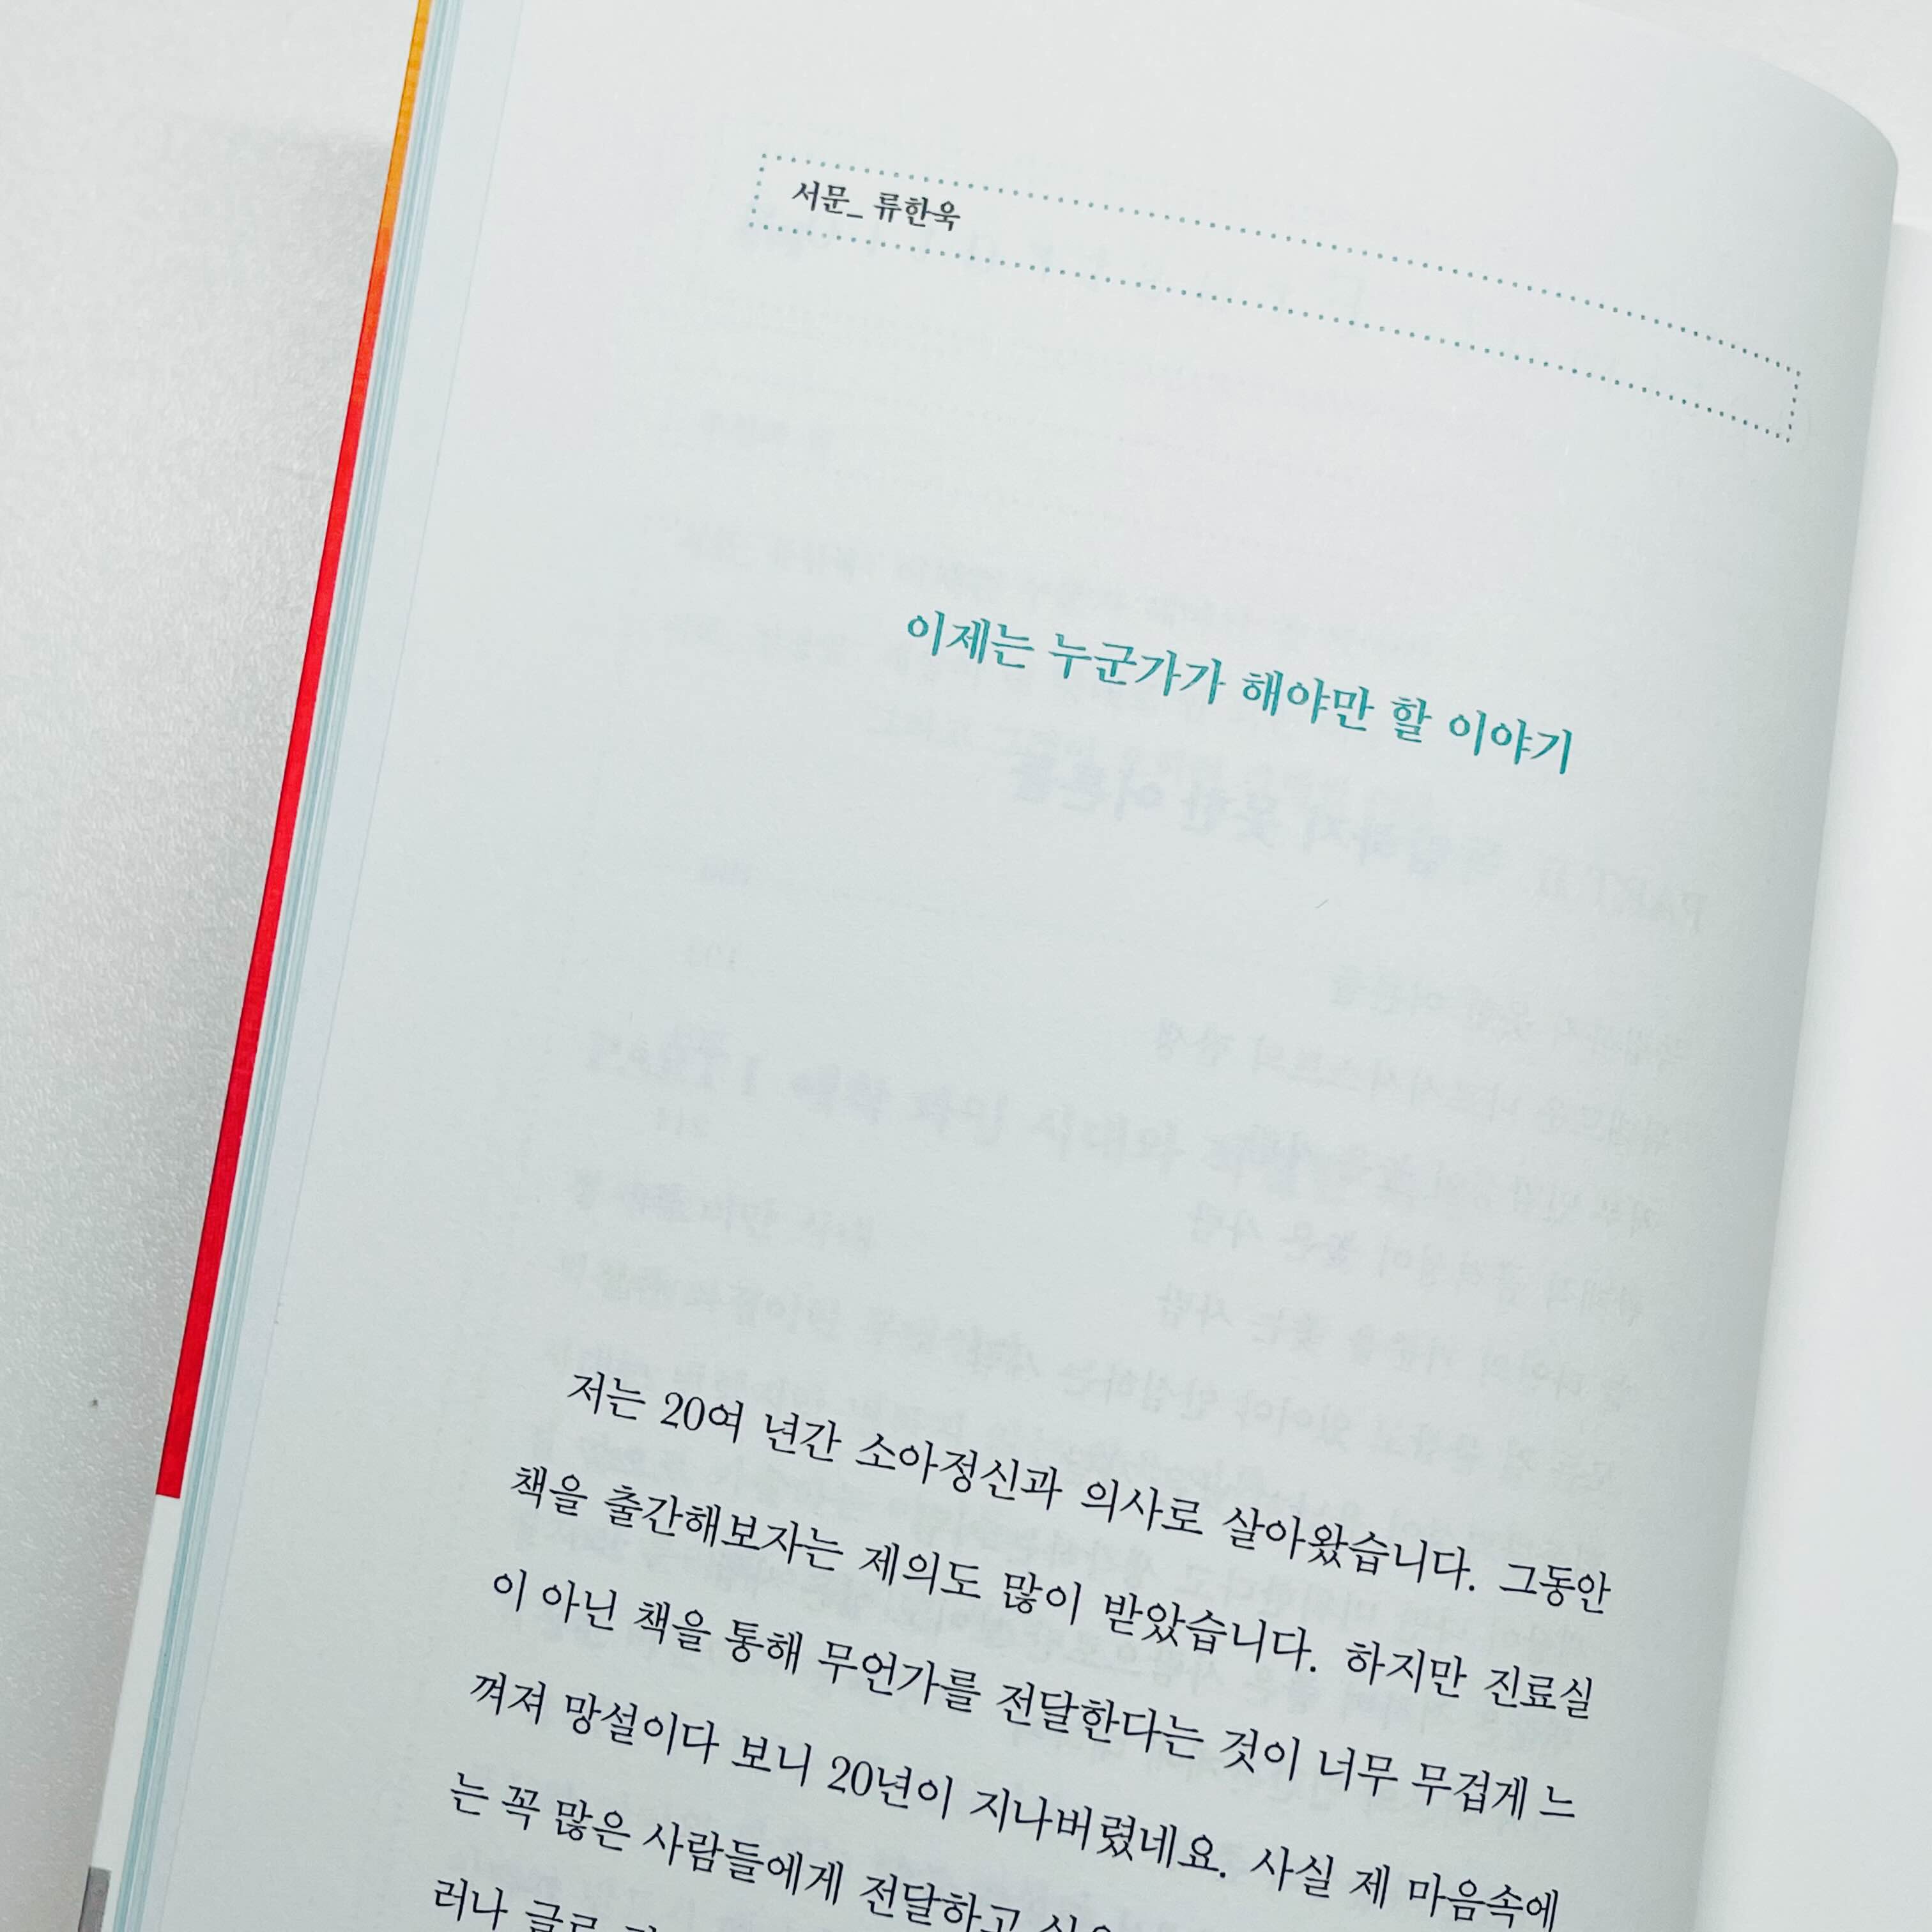 서문_ 류한욱
이제는 누군가가 해야만 할 이야기
저는 20여 년간 소아정신과 의사로 살아왔습니다. 그동안
책을 출간해보자는 제의도 많이 받았습니다. 하지만 진료실
이 아닌 책을 통해 무언가를 전달한다는 것이 너무 무겁게 느
껴져 망설이다 보니 20년이 지나버렸네요. 사실 제 마음속에
는 꼭 많은 사람들에게 전달하고
러나 글로